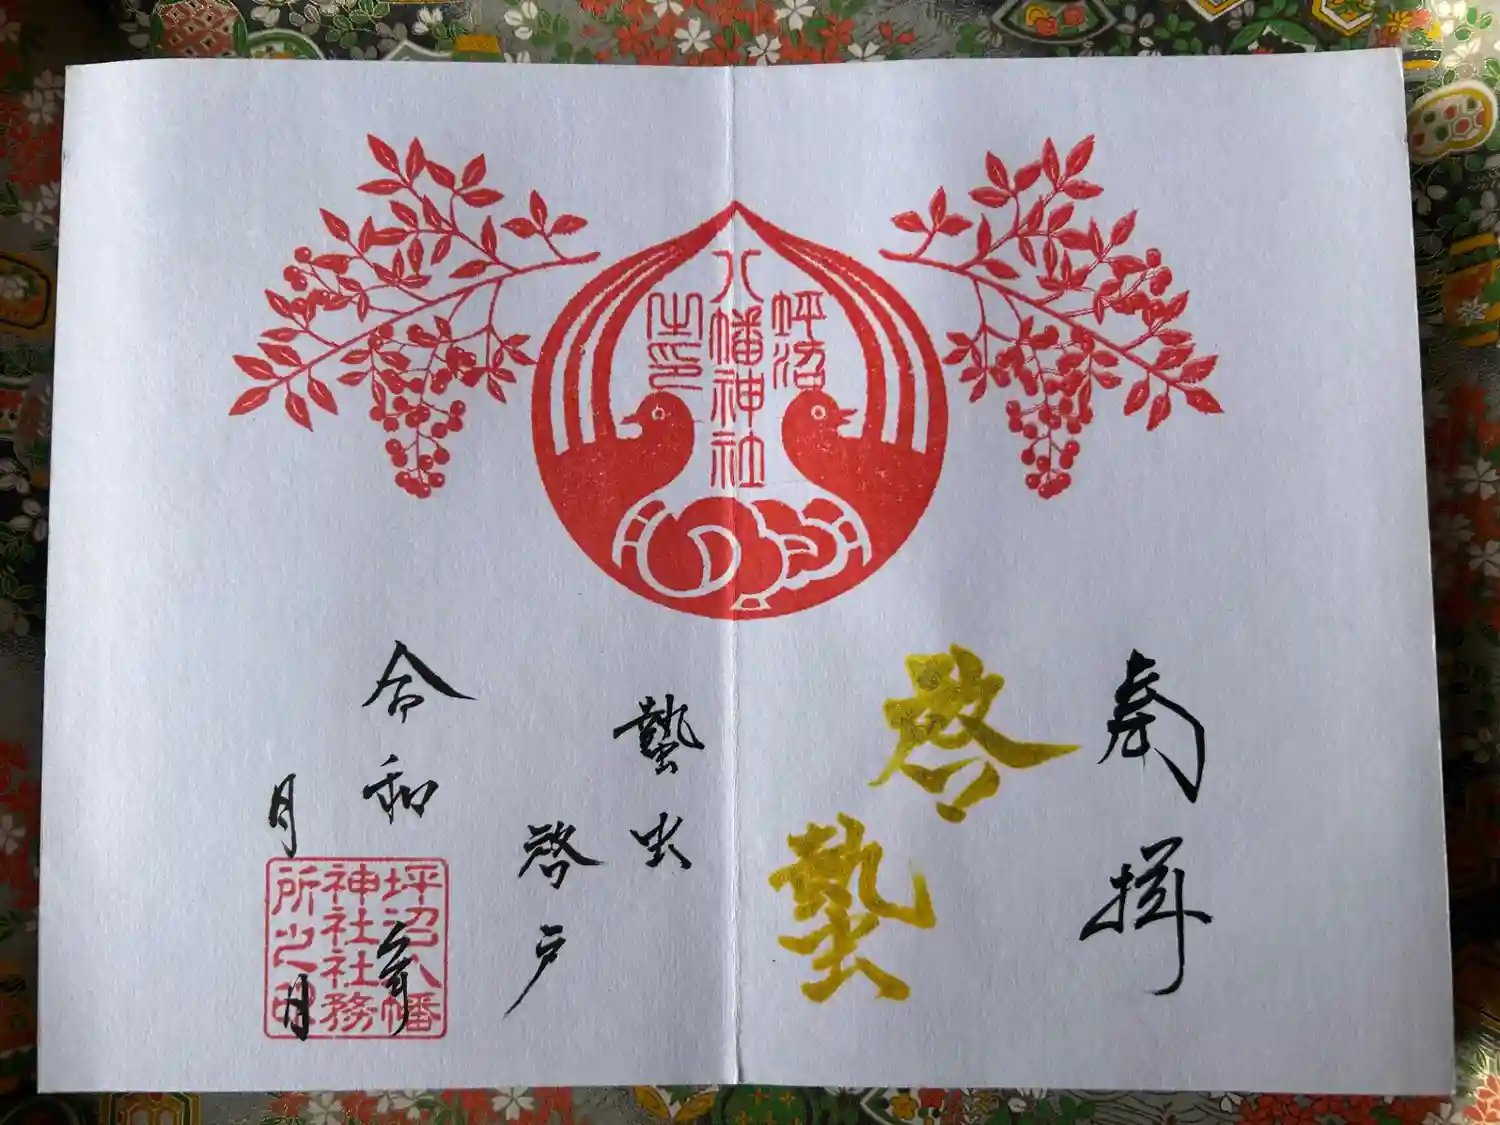 坪沼
八幡神社
之印
奉拝
啓蟄
蟄虫
啓戸
令和 年
月 日
坪沼八幡
神社社務
所之印